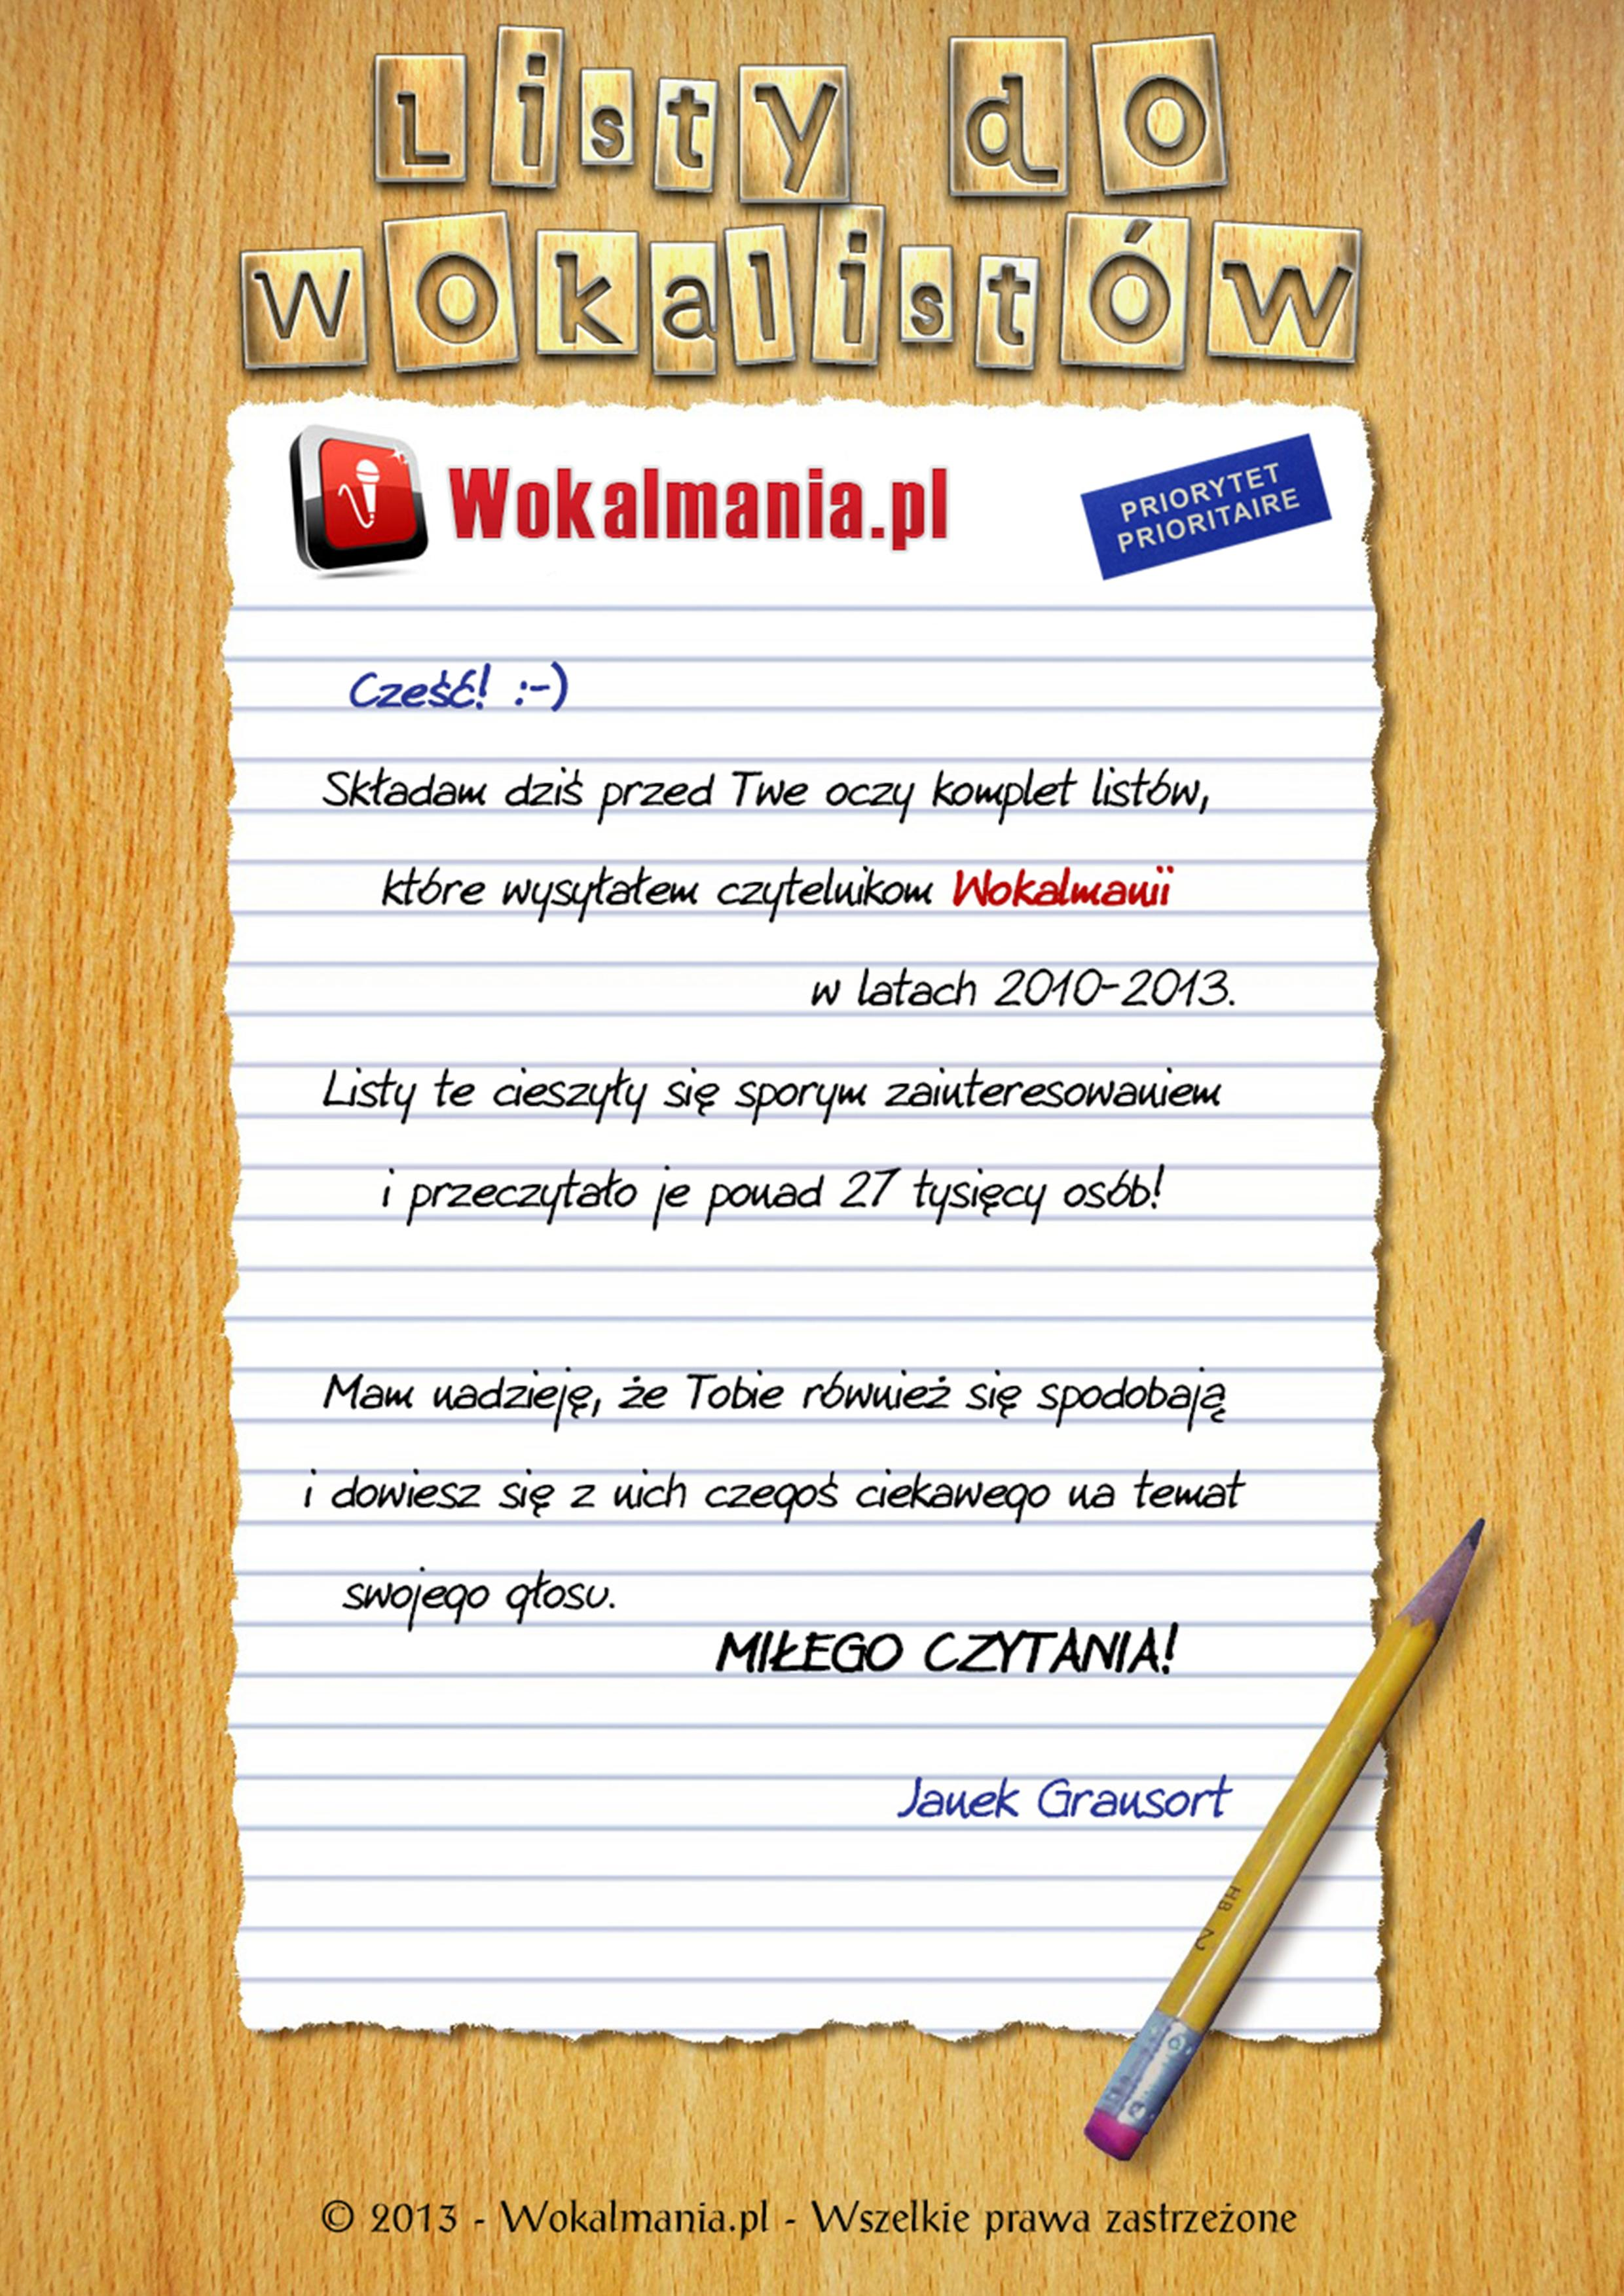 Listy do
wokalistów
Wokalmania.pl
PRIORYTET
PRIORITAIRE
Cześć! :-)
Składam dziś przed Twe oczy komplet listów,
które wysyłałem czytelnikom Wokalmanii
w latach 2010-2013.
Listy te cieszyły się sporym zainteresowaniem
i przeczytało je ponad 27 tysięcy osób!
Mam nadzieję, że Tobie również się spodobają
i dowiesz się z nich czegoś ciekawego na temat
swojego głosu.
MIŁEGO CZYTANIA!
Janek Grausort
HB 2
© 2013 - Wokalmania.pl - Wszelkie prawa zastrzeżone